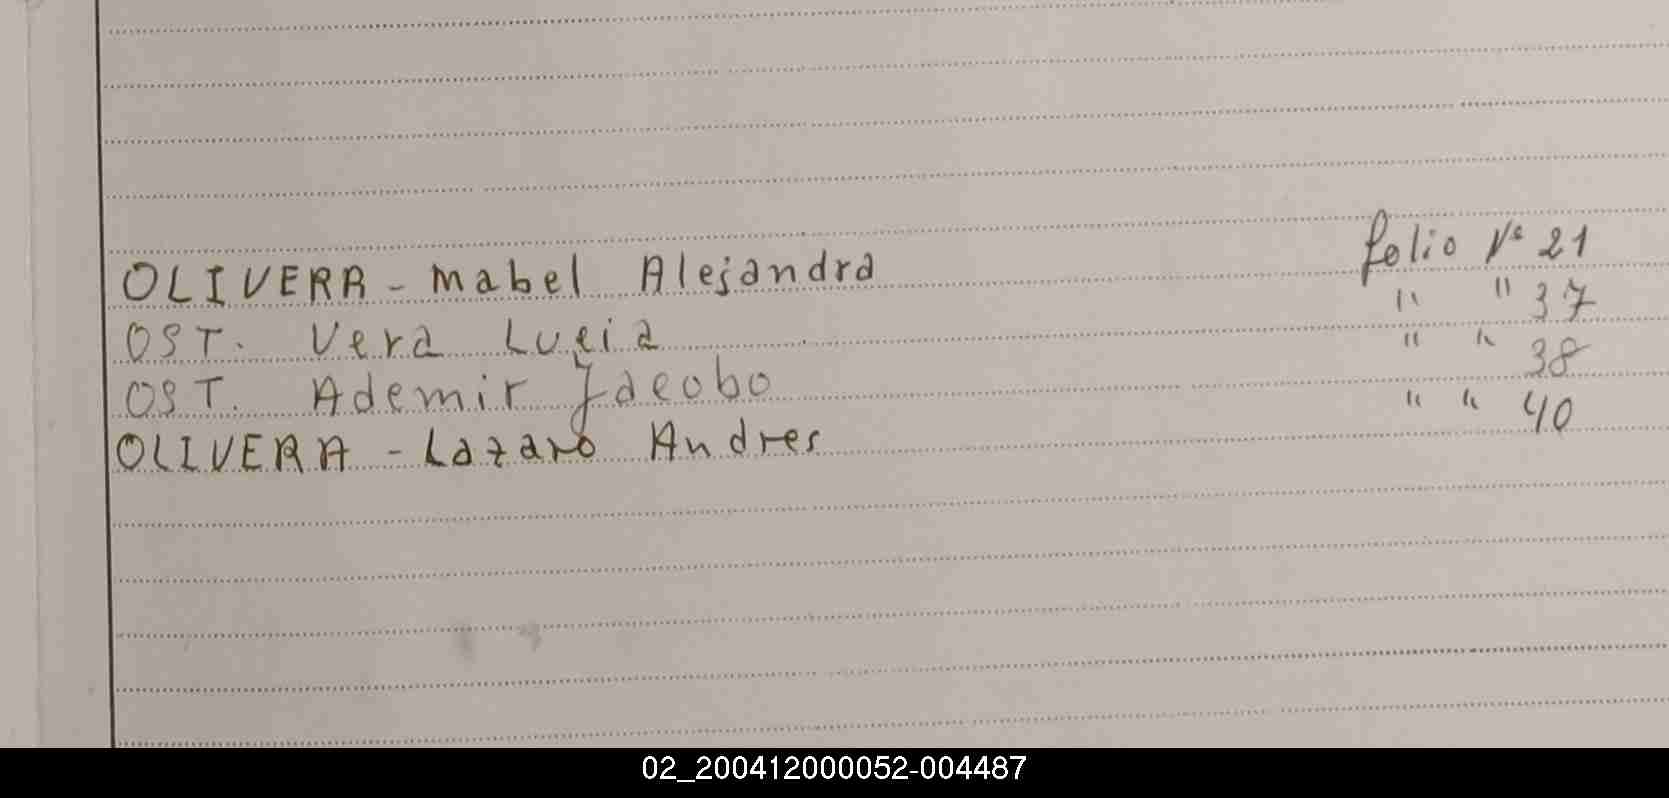 OLIVERA - Mabel Alejandra folio Nº 21
OST. Vera Lucia " " 37
OST. Ademir Jacobo " " 38
OLIVERA - Lazaro Andres " " 40
02_200412000052-004487